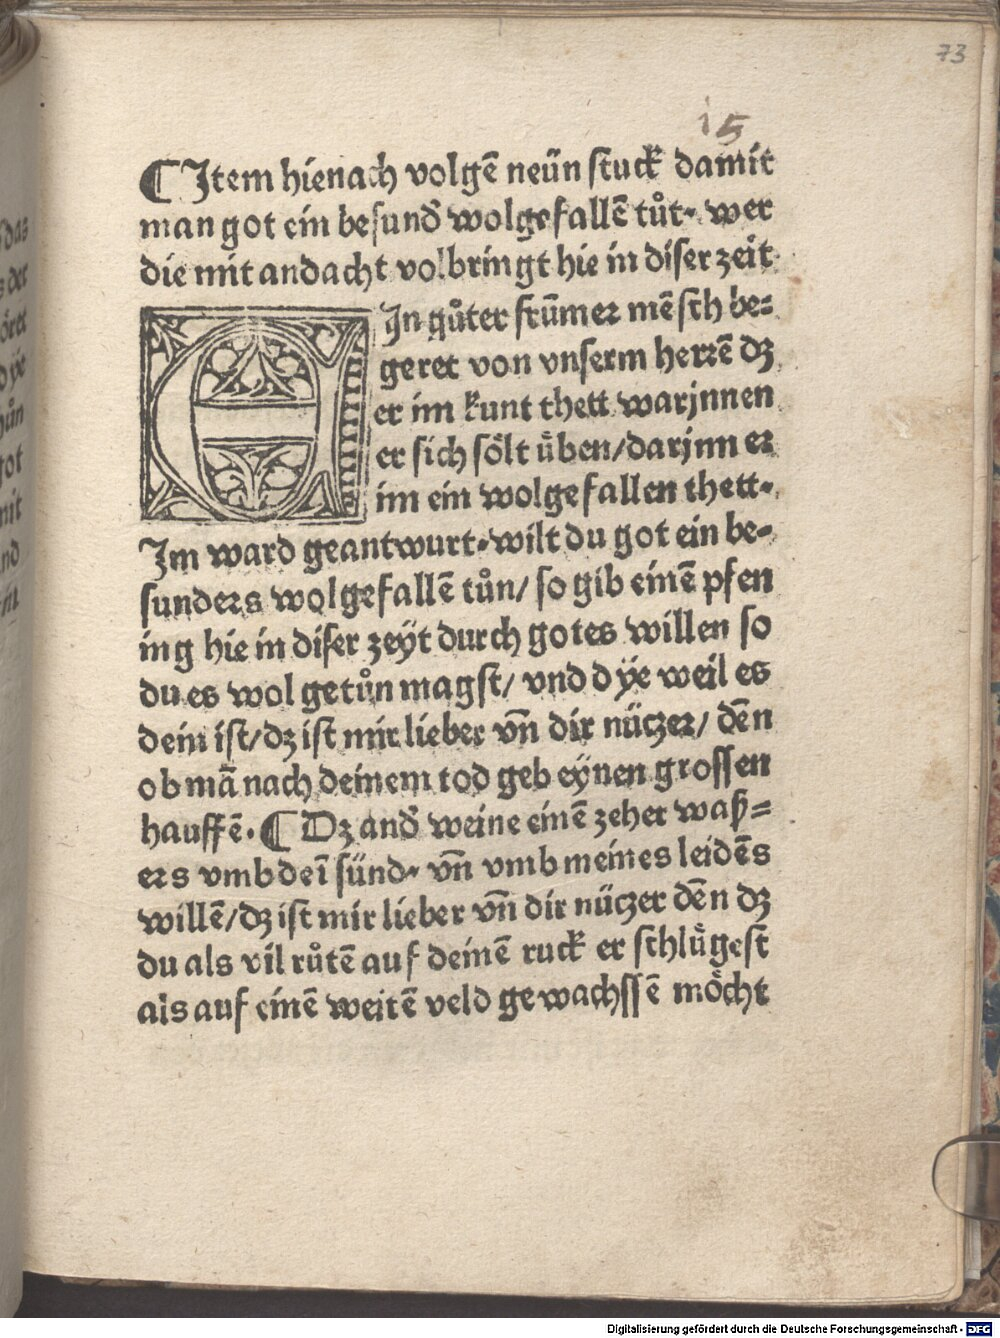 73
15
¶ Jtem hienach volgē neün stuck damit
man got ein besund̄ wolgefallē tůt. wer
die mit andacht volbringt hie in diser zeit
EJn gůter frūmer mēsch be=
geret von vnserm herren dz
er im kunt thett warjnnen
er sich sölt üben/darjnn er
im ein wolgefallen thett.
Jm ward geantwurt. wilt du got ein be=
sunders wolgefallē tůn/ so gib einē pfen
ing hie in diser zeÿt durch gotes willen so
du es wol getůn magst/ vnd dÿe weil es
dein ist/dz ist mir lieber vn̄ dir nüczer/ dēn
ob mā nach deinem tod geb eÿnen grossen
hauffē. ¶ Dz and̄ weine einē zeher waß=
ers vmb deī sünd. vn̄ vmb meines leidēs
willē/dz ist mir lieber vn̄ dir nüczer dēn dz
du als vil růtē auf deinē ruck er schlůgest
als auf einē weitē veld gewachssē möcht
Digitalisierung gefördert durch die Deutsche Forschungsgemeinschaft - DFG